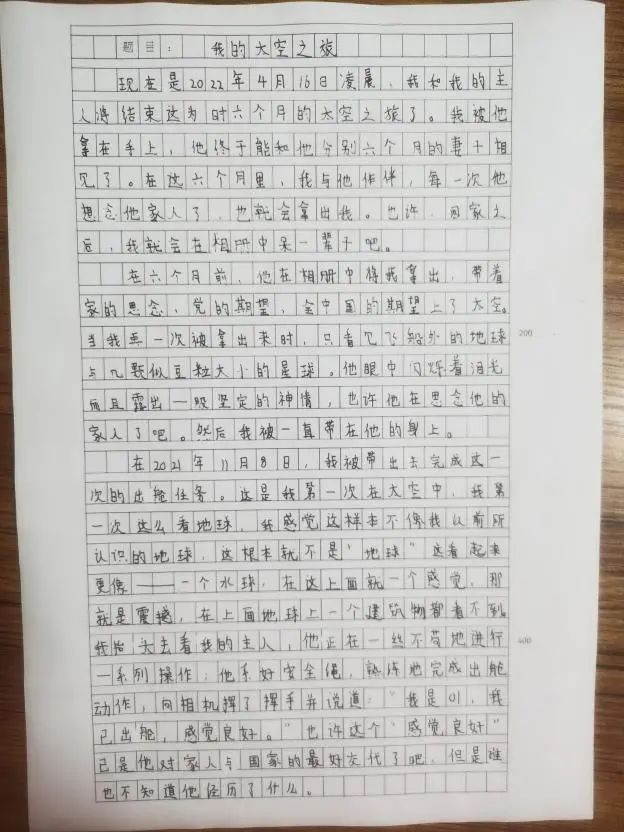 题目： 我的太空之旅
现在是2022年4月16日凌晨，我和我的主
人将结束这为时六个月的太空之旅了。我被他
拿在手上，他终于能和他分别六个月的妻子相
见了。在这六个月里，我与他作伴，每一次他
想念他家人了，也就会拿出我。也许，回家之
后，我就会在相册中呆一辈子吧。
在六个月前，他在相册中将我拿出，带着
家的思念，党的期望，全中国的期望上了太空。
当我再一次被拿出来时，只看见飞船外的地球
与几颗似豆粒大小的星球。他眼中闪烁着泪光
而且露出一股坚定的神情，也许他在思念他的
家人了吧。然后我被一直带在他的身上。
200
在2021年11月8日，我被带出去完成这一
次的出舱任务。这是我第一次在太空中，我第
一次这么看地球，我感觉这样本不像我以前所
认识的地球，这根本就不是“地球”这看起来
更像——一个水球，在这上面就一个感觉，那
就是震撼，在上面地球上一个建筑物都看不到。
我抬头去看我的主人，他正在一丝不苟地进行
400
一系列操作，他系好安全绳，熟练地完成出舱
动作，向相机挥了挥手并说道：“我是01，我
已出舱，感觉良好。”也许这个“感觉良好”
已是他对家人与国家的最好交代了吧，但是谁
也不知道他经历了什么。